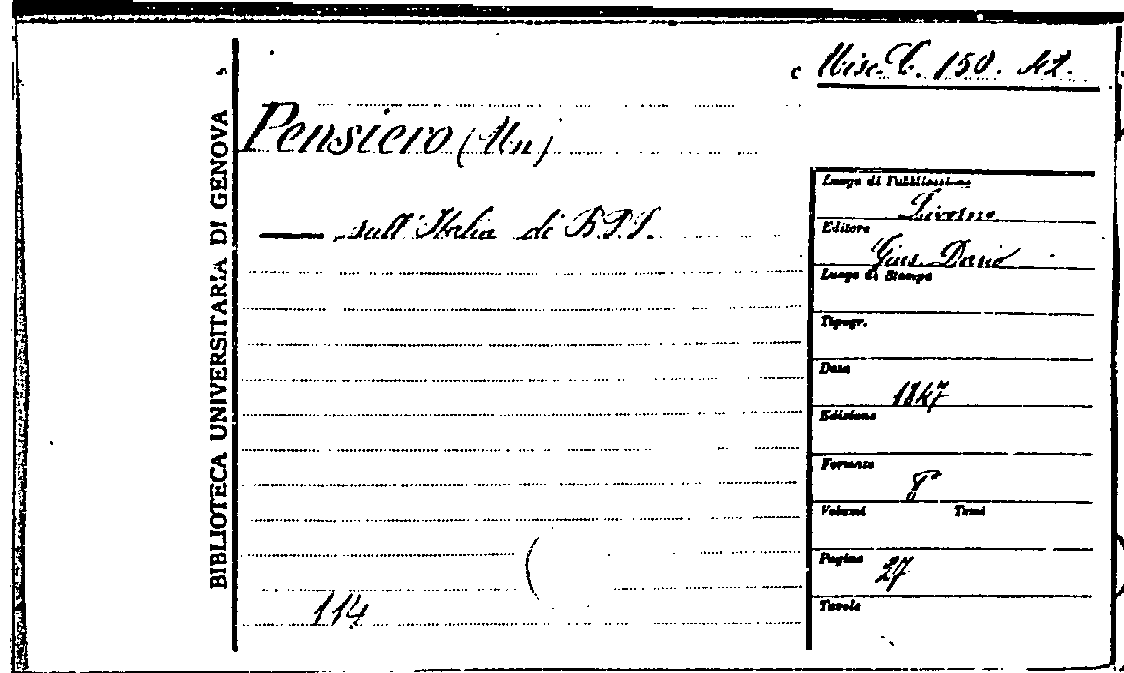 BIBLIOTECA UNIVERSITARIA DI GENOVA
Misc. C. 150. 42.
Pensiero (Un)
— sull'Italia di B.P.S.
Luogo di Pubblicazione
Livorno
Editore
Gius. Dario
Luogo di Stampa
Tipogr.
Data
1847
Edizione
Formato
8°
Volumi Tomi
Pagine 27
Tavole
114